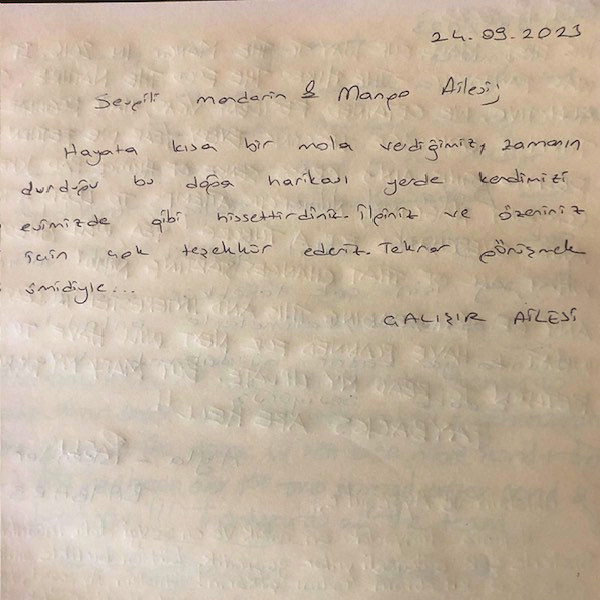 24.09.2023
Sevgili mandarin & Mango Ailesi,
Hayata kısa bir mola verdiğimiz, zamanın
durduğu bu doğa harikası yerde kendimizi
evimizde gibi hissettirdiniz. İlginiz ve özeniniz
için çok teşekkür ederiz. Tekrar görüşmek
ümidiyle...
ÇALIŞIR AİLESİ